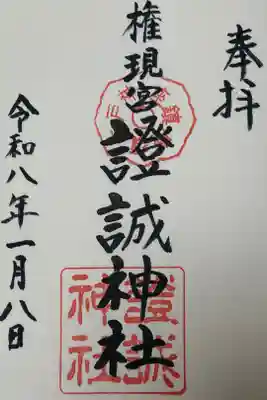 奉拝
権現宮
證誠神社
令和八年一月八日
證誠
神社